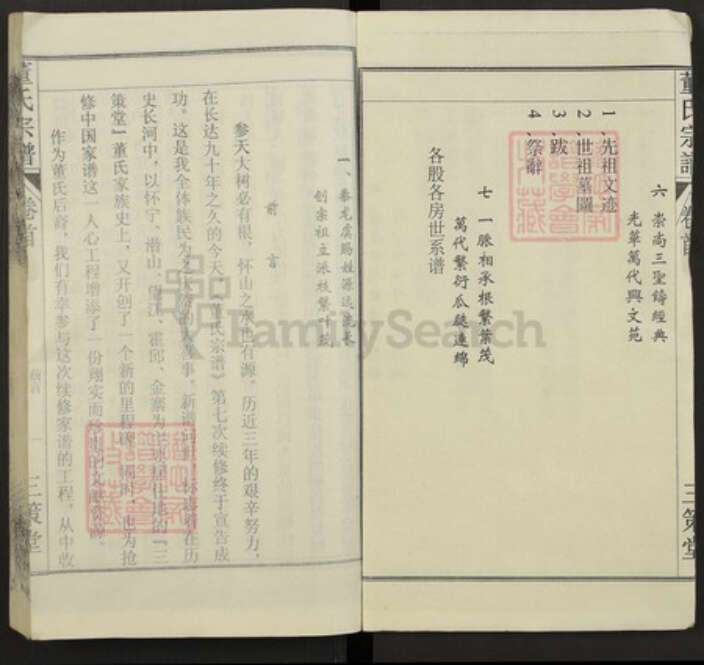 董氏宗譜
卷首
三策堂
六 崇尚三聖鑄經典
光華萬代興文苑
1、先祖文迹
2、世祖墓圖
3、跋
4、祭辭
七 一脈相承根繁葉茂
萬代繁衍瓜瓞連綿
各股各房世系谱
一、豢龙虞赐姓源远流长
创宗祖立派枝繁叶茂
前 言
参天大树必有根，怀山之水必有源。历近三年的艰辛努力，
在长达九十年之久的今天，《董氏宗谱》第七次续修终于宣告成
功。这是我全体族民为之大事，新谱问世，标志着在历
史长河中，以怀宁、潜山、望江、霍邱、金寨为主要居住地的『三
策堂』董氏家族史上，又开创了一个新的里程碑，同时，也为抢
修中国家谱这一人心工程增添了一份翔实而珍贵的文献资料。
作为董氏后裔，我们有幸参与这次续修家谱的工程，从中收
董氏宗譜
卷首
前言
一
三策堂
FamilySearch